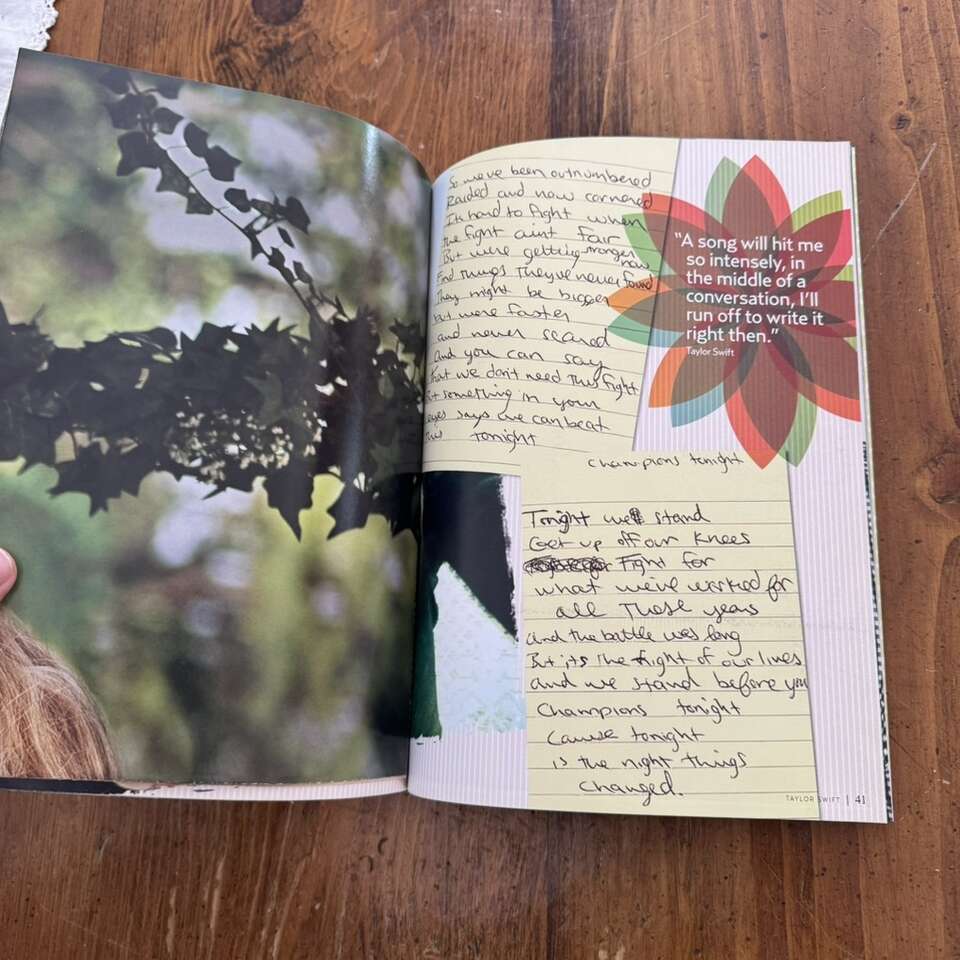 So we've been outnumbered
Raided and now cornered
Its hard to fight when
the fight aint Fair
But were getting stronger
now
Find things They've never found
They might be bigger
but were faster
and never scared
And you can say
that we don't need This fight
But something in your
eyes says we can beat
This tonight
Champions tonight
Tonight we'll stand
Get up off our knees
Fight for
what we've worked for
all These years
and the battle was long
But its The fight of our lives
and we stand before you
Champions tonight
Cause tonight
is the night things
changed.
"A song will hit me
so intensely, in
the middle of a
conversation, I'll
run off to write it
right then."
Taylor Swift
TAYLOR SWIFT | 41